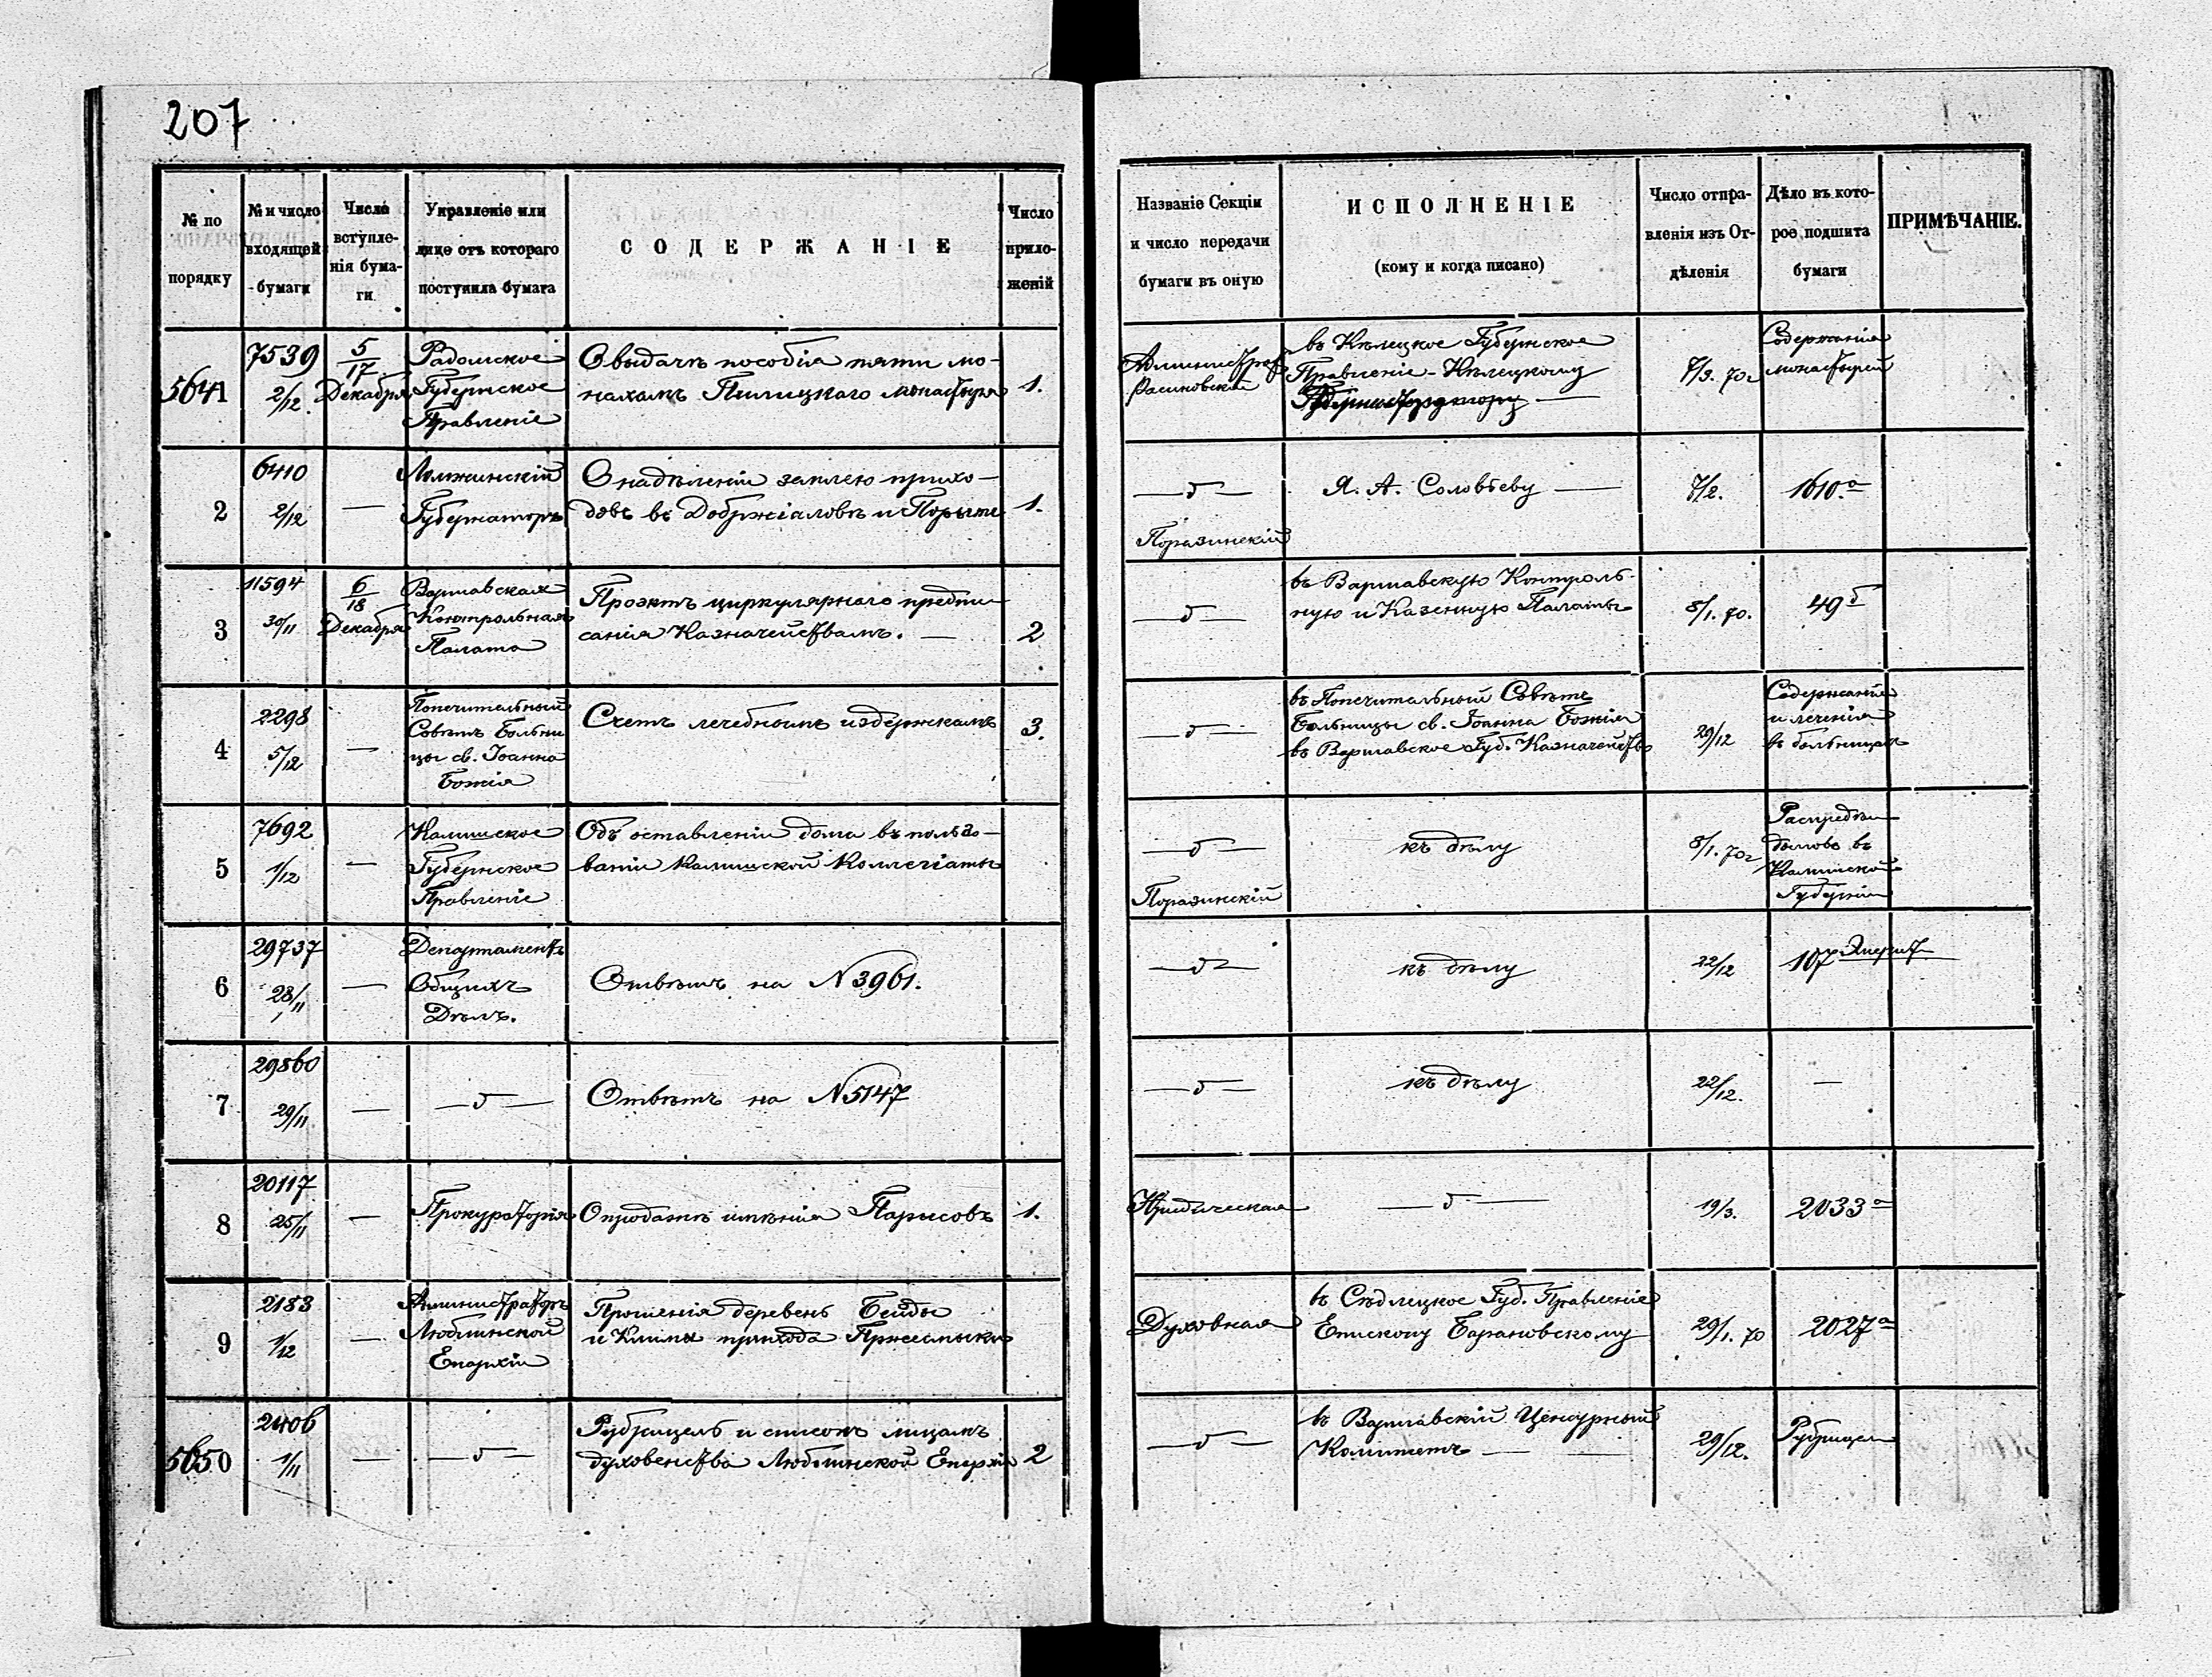 207
№ по порядку
№ и число входящей бумаги
Число вступле-нія бума-ги.
Управленіе или лице отъ котораго поступила бумага
СОДЕРЖАНІЕ
Число прило-женій
Названіе Секціи и число передачи бумаги въ оную
ИСПОЛНЕНІЕ
(кому и когда писано)
Число отпра-вленія изъ От-дѣленія
Дѣло въ кото-рое подшита бумаги
ПРИМѢЧАНІЕ.
5641
7539
2/12.
5/17
Декабря
Радомское
Губернское
Правленіе
О выдачѣ пособія пяти мо-
нахамъ Пилицкаго монастыря
1.
въ Кѣлецкое Губернское
Правленіе - Кѣлецкому
7/3. 70г
Содержаніе
монастырей
2
6410
2/12
—
Ломжинскій
Губернаторъ
О надѣленіи землею прихо-
довъ въ Добржіаловѣ и Порыте
1.
—б—
Поразинскій
Я. А. Соловьеву —
7/2.
1610.а
3
11594
30/11
6/18
Декабря
Варшавская
Контрольная
Палата
Проэктъ циркулярнаго предпи-
санія Казначействамъ. —
2
—б—
въ Варшавскую Контроль-
ную и Казенную Палаты
8/1. 70.
49б
4
2298
5/12
—
Попечительный
Совѣтъ Больни
цы св. Іоанна
Божія
Счетъ лечебнымъ издержкамъ
3.
—б—
въ Попечительный Совѣтъ
Больницы св. Іоанна Божія
въ Варшавское Губ. Казначейство
29/12
Содержаніе
и леченія
въ больницахъ
5
7692
1/12
—
Калишское
Губернское
Правленіе
Объ оставленіи дома въ пользо-
ваніи Калишской Коллегіаты
—б—
Поразинскій
къ дѣлу
8/1. 70г
домовъ въ
Калишской
Губерніи
6
29737
28/11
—
Департаментъ
Общихъ
Дѣлъ.
Отвѣтъ на N 3961.
—б—
къ дѣлу
22/12
107
7
29860
29/11
—
—б—
Отвѣтъ на N 5147
—б—
къ дѣлу
22/12.
—
8
20117
25/11
—
Прокураторія
О продажѣ имѣнія Парысовъ
1.
Юридическая
—б—
19/3.
2033а
9
2183
1/12
—
Администраторъ
Люблинской
Епархіи
Прошенія деревень Бейды
и Климы прихода Пржесмыки
Духовная
въ Сѣдлецкое Губ. Правленіе
Епископу Барановскому
29/1. 70
2027а
5650
2406
1/11
—
—б—
Рубрицель и списокъ лицамъ
духовенства Люблинской Епархіи
2
—б—
въ Варшавскій Цензурный
Комитетъ —
29/12.
Рубрицели